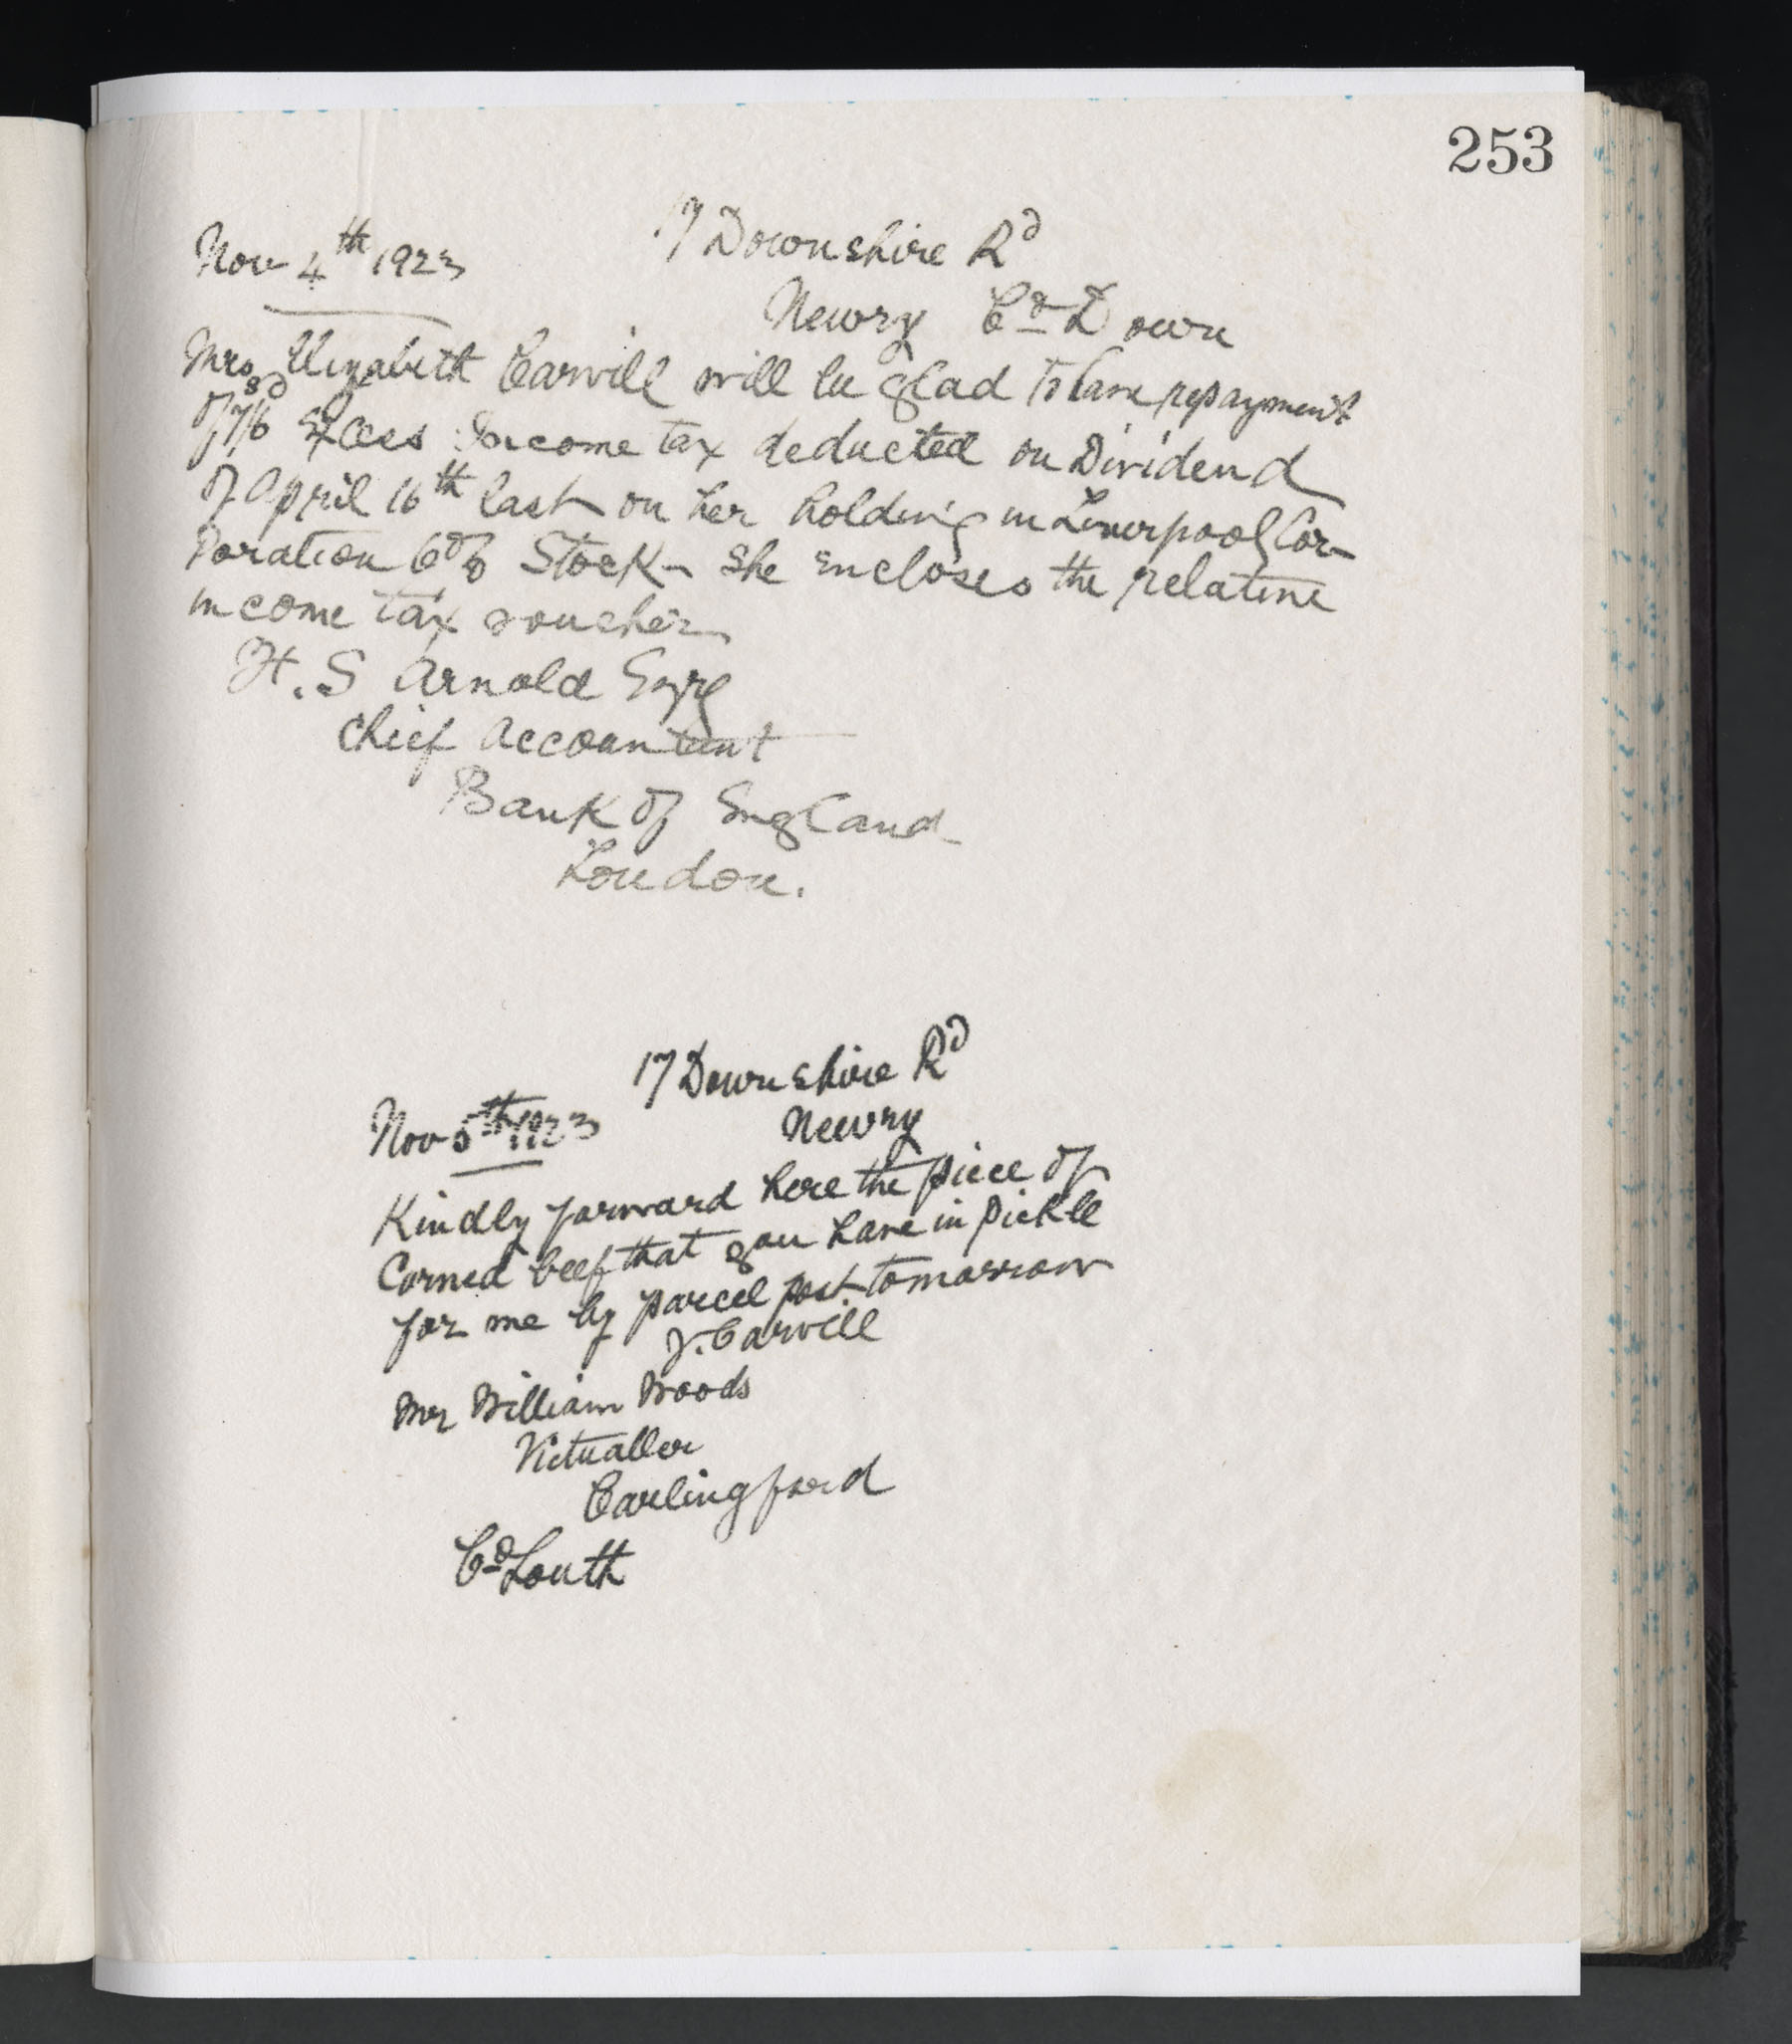 253
17 Downshire Rd
Nov 4th 1923
Newry Co Down
Mrs Elizabeth Carvill will be glad to have repayment
of 7/6 Excess Income tax deducted on Dividend
of April 16th last on her holding in Liverpool Cor-
poration 6% Stock - She encloses the relative
income tax voucher
H. S Arnold Esqre
Chief Accountant
Bank of England
London.
17 Downshire Rd
Nov 5th 1923
Newry
Kindly forward here the piece of
Corned beef that you have in pickle
for me by parcel post tomorrow
J. Carvill
Mr William Woods
Victualler
Carlingford
Co Louth